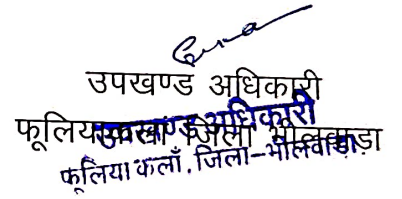 उपखण्ड अधिकारी
फूलिया कलां जिला भीलवाड़ा
उपखण्ड अधिकारी
फूलिया कलाँ, जिला-भीलवाड़ा